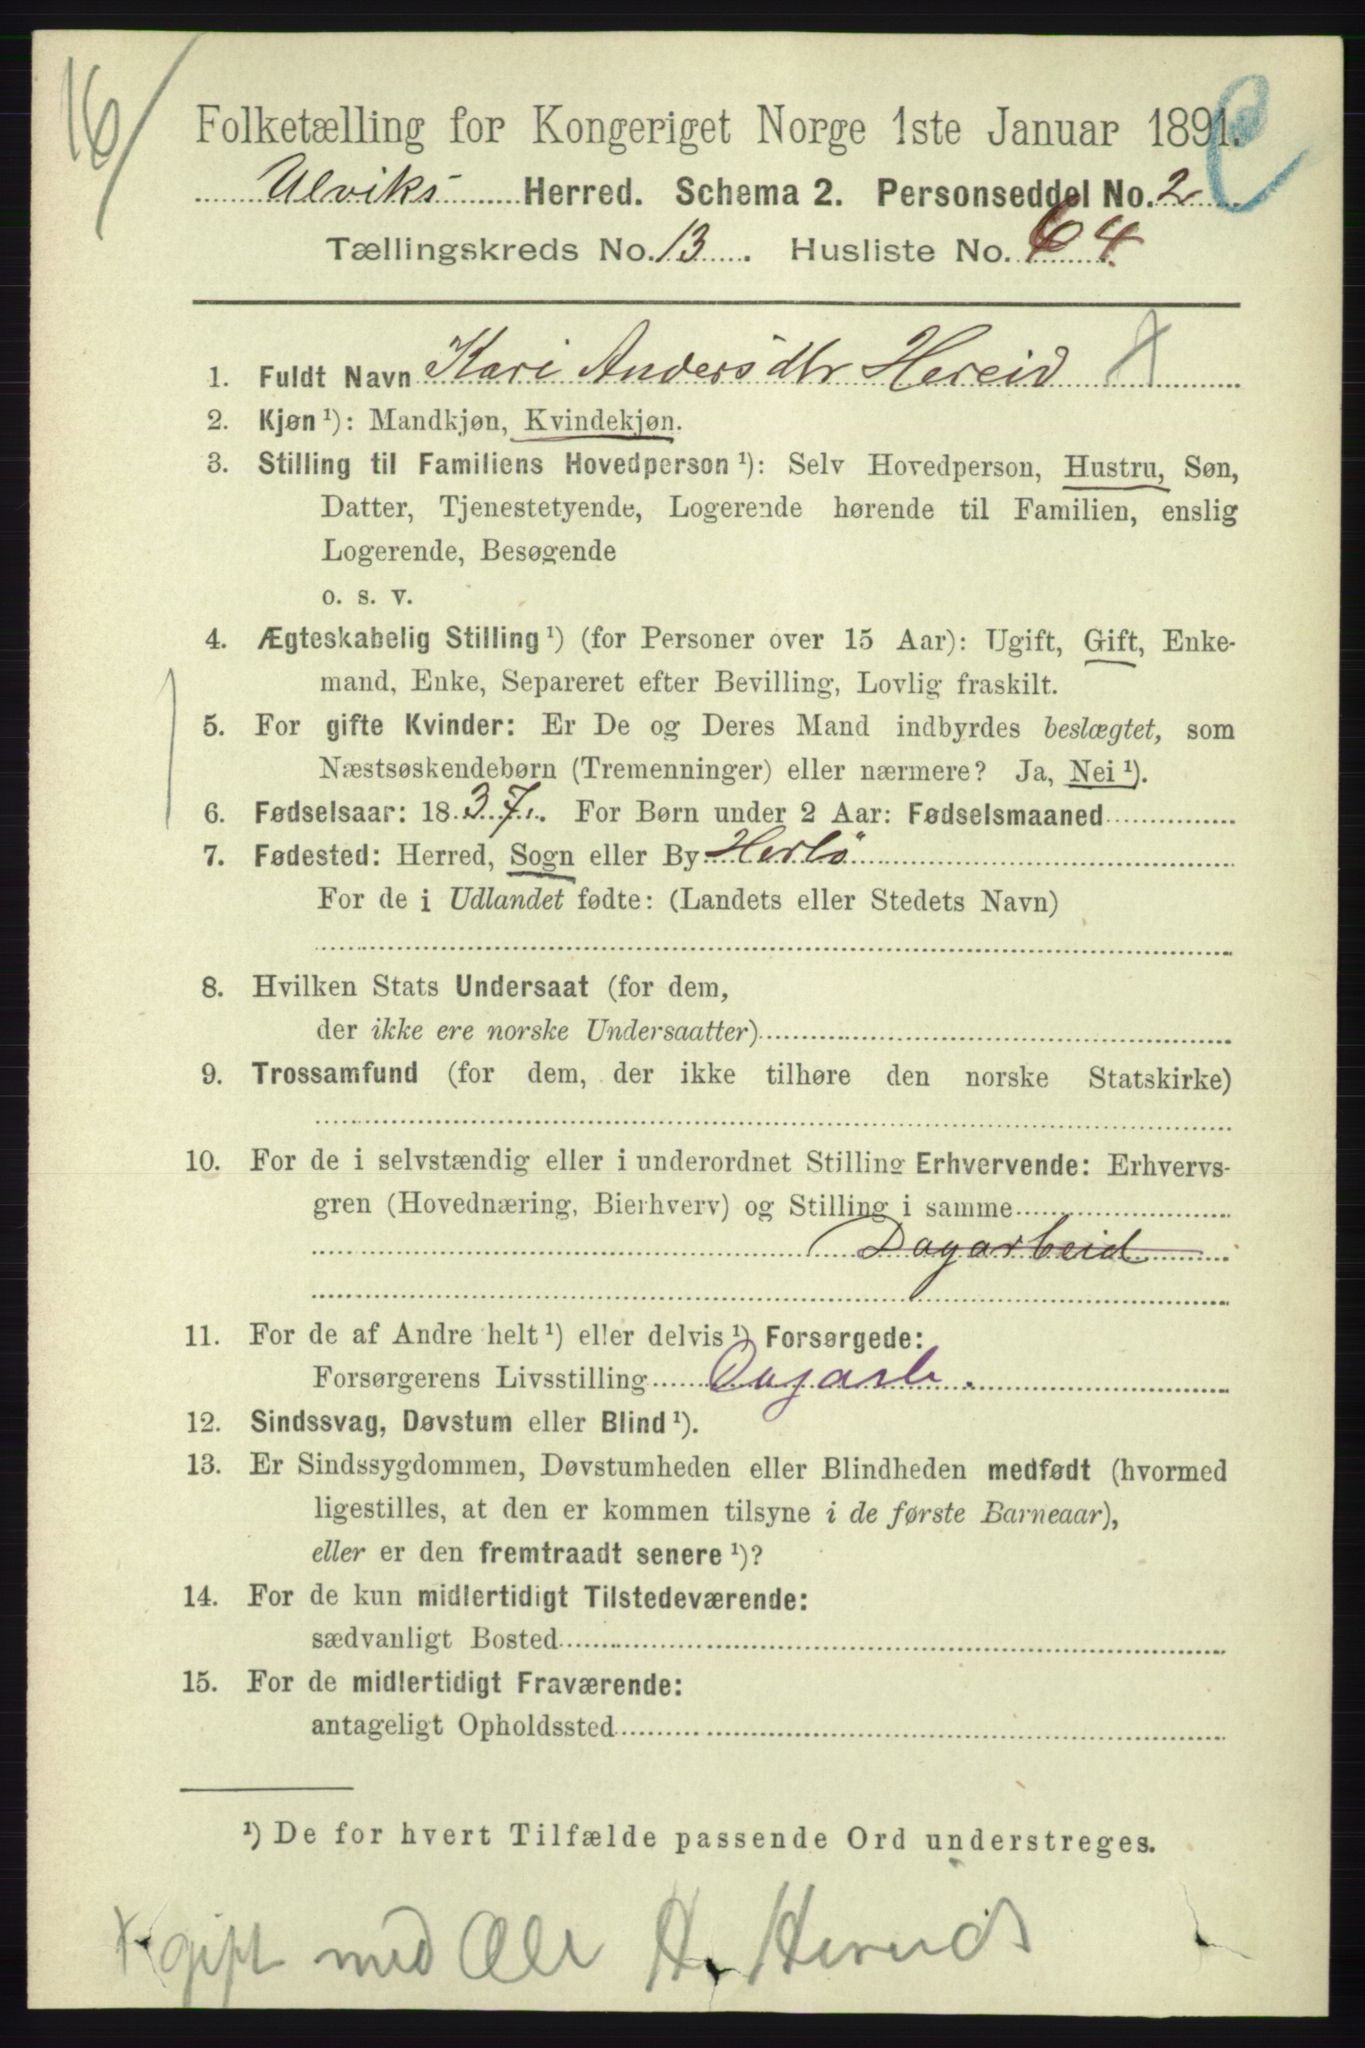 16
Folketælling for Kongeriget Norge 1ste Januar 1891.
Ulviks Herred. Schema 2. Personseddel No. 2
Tællingskreds No. 13. Husliste No. 64
1. Fuldt Navn Kari Andersdtr Hereid
2. Kjøn ¹): Mandkjøn, Kvindekjøn.
3. Stilling til Familiens Hovedperson ¹): Selv Hovedperson, Hustru, Søn,
Datter, Tjenestetyende, Logerende hørende til Familien, enslig
Logerende, Besøgende
o. s. v.
4. Ægteskabelig Stilling ¹) (for Personer over 15 Aar): Ugift, Gift, Enke-
mand, Enke, Separeret efter Bevilling, Lovlig fraskilt.
5. For gifte Kvinder: Er De og Deres Mand indbyrdes beslægtet, som
Næstsøskendebørn (Tremenninger) eller nærmere? Ja, Nei ¹).
6. Fødselsaar: 1837. For Børn under 2 Aar: Fødselsmaaned
7. Fødested: Herred, Sogn eller By Herlö
For de i Udlandet fødte: (Landets eller Stedets Navn)
8. Hvilken Stats Undersaat (for dem,
der ikke ere norske Undersaatter)
9. Trossamfund (for dem, der ikke tilhøre den norske Statskirke)
10. For de i selvstændig eller i underordnet Stilling Erhvervende: Erhvervs-
gren (Hovednæring, Bierhverv) og Stilling i samme
Dagarbeid
11. For de af Andre helt ¹) eller delvis ¹) Forsørgede:
Forsørgerens Livsstilling Dagarb.
12. Sindssvag, Døvstum eller Blind ¹).
13. Er Sindssygdommen, Døvstumheden eller Blindheden medfødt (hvormed
ligestilles, at den er kommen tilsyne i de første Barneaar),
eller er den fremtraadt senere ¹)?
14. For de kun midlertidigt Tilstedeværende:
sædvanligt Bosted
15. For de midlertidigt Fraværende:
antageligt Opholdssted
¹) De for hvert Tilfælde passende Ord understreges.
gift med Ole H. Hereid